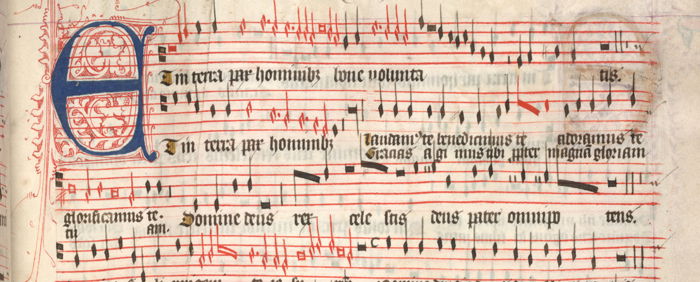 Et in terra pax hominibz bone volunta tis.
Et in terra pax hominibz laudam9 te benedicimus te adoramus te
Gracias agimus tibi ppter magnā gloriam
glorificamus te. Domine deus rex cele stis deus pater omnipo tens.
tu am.